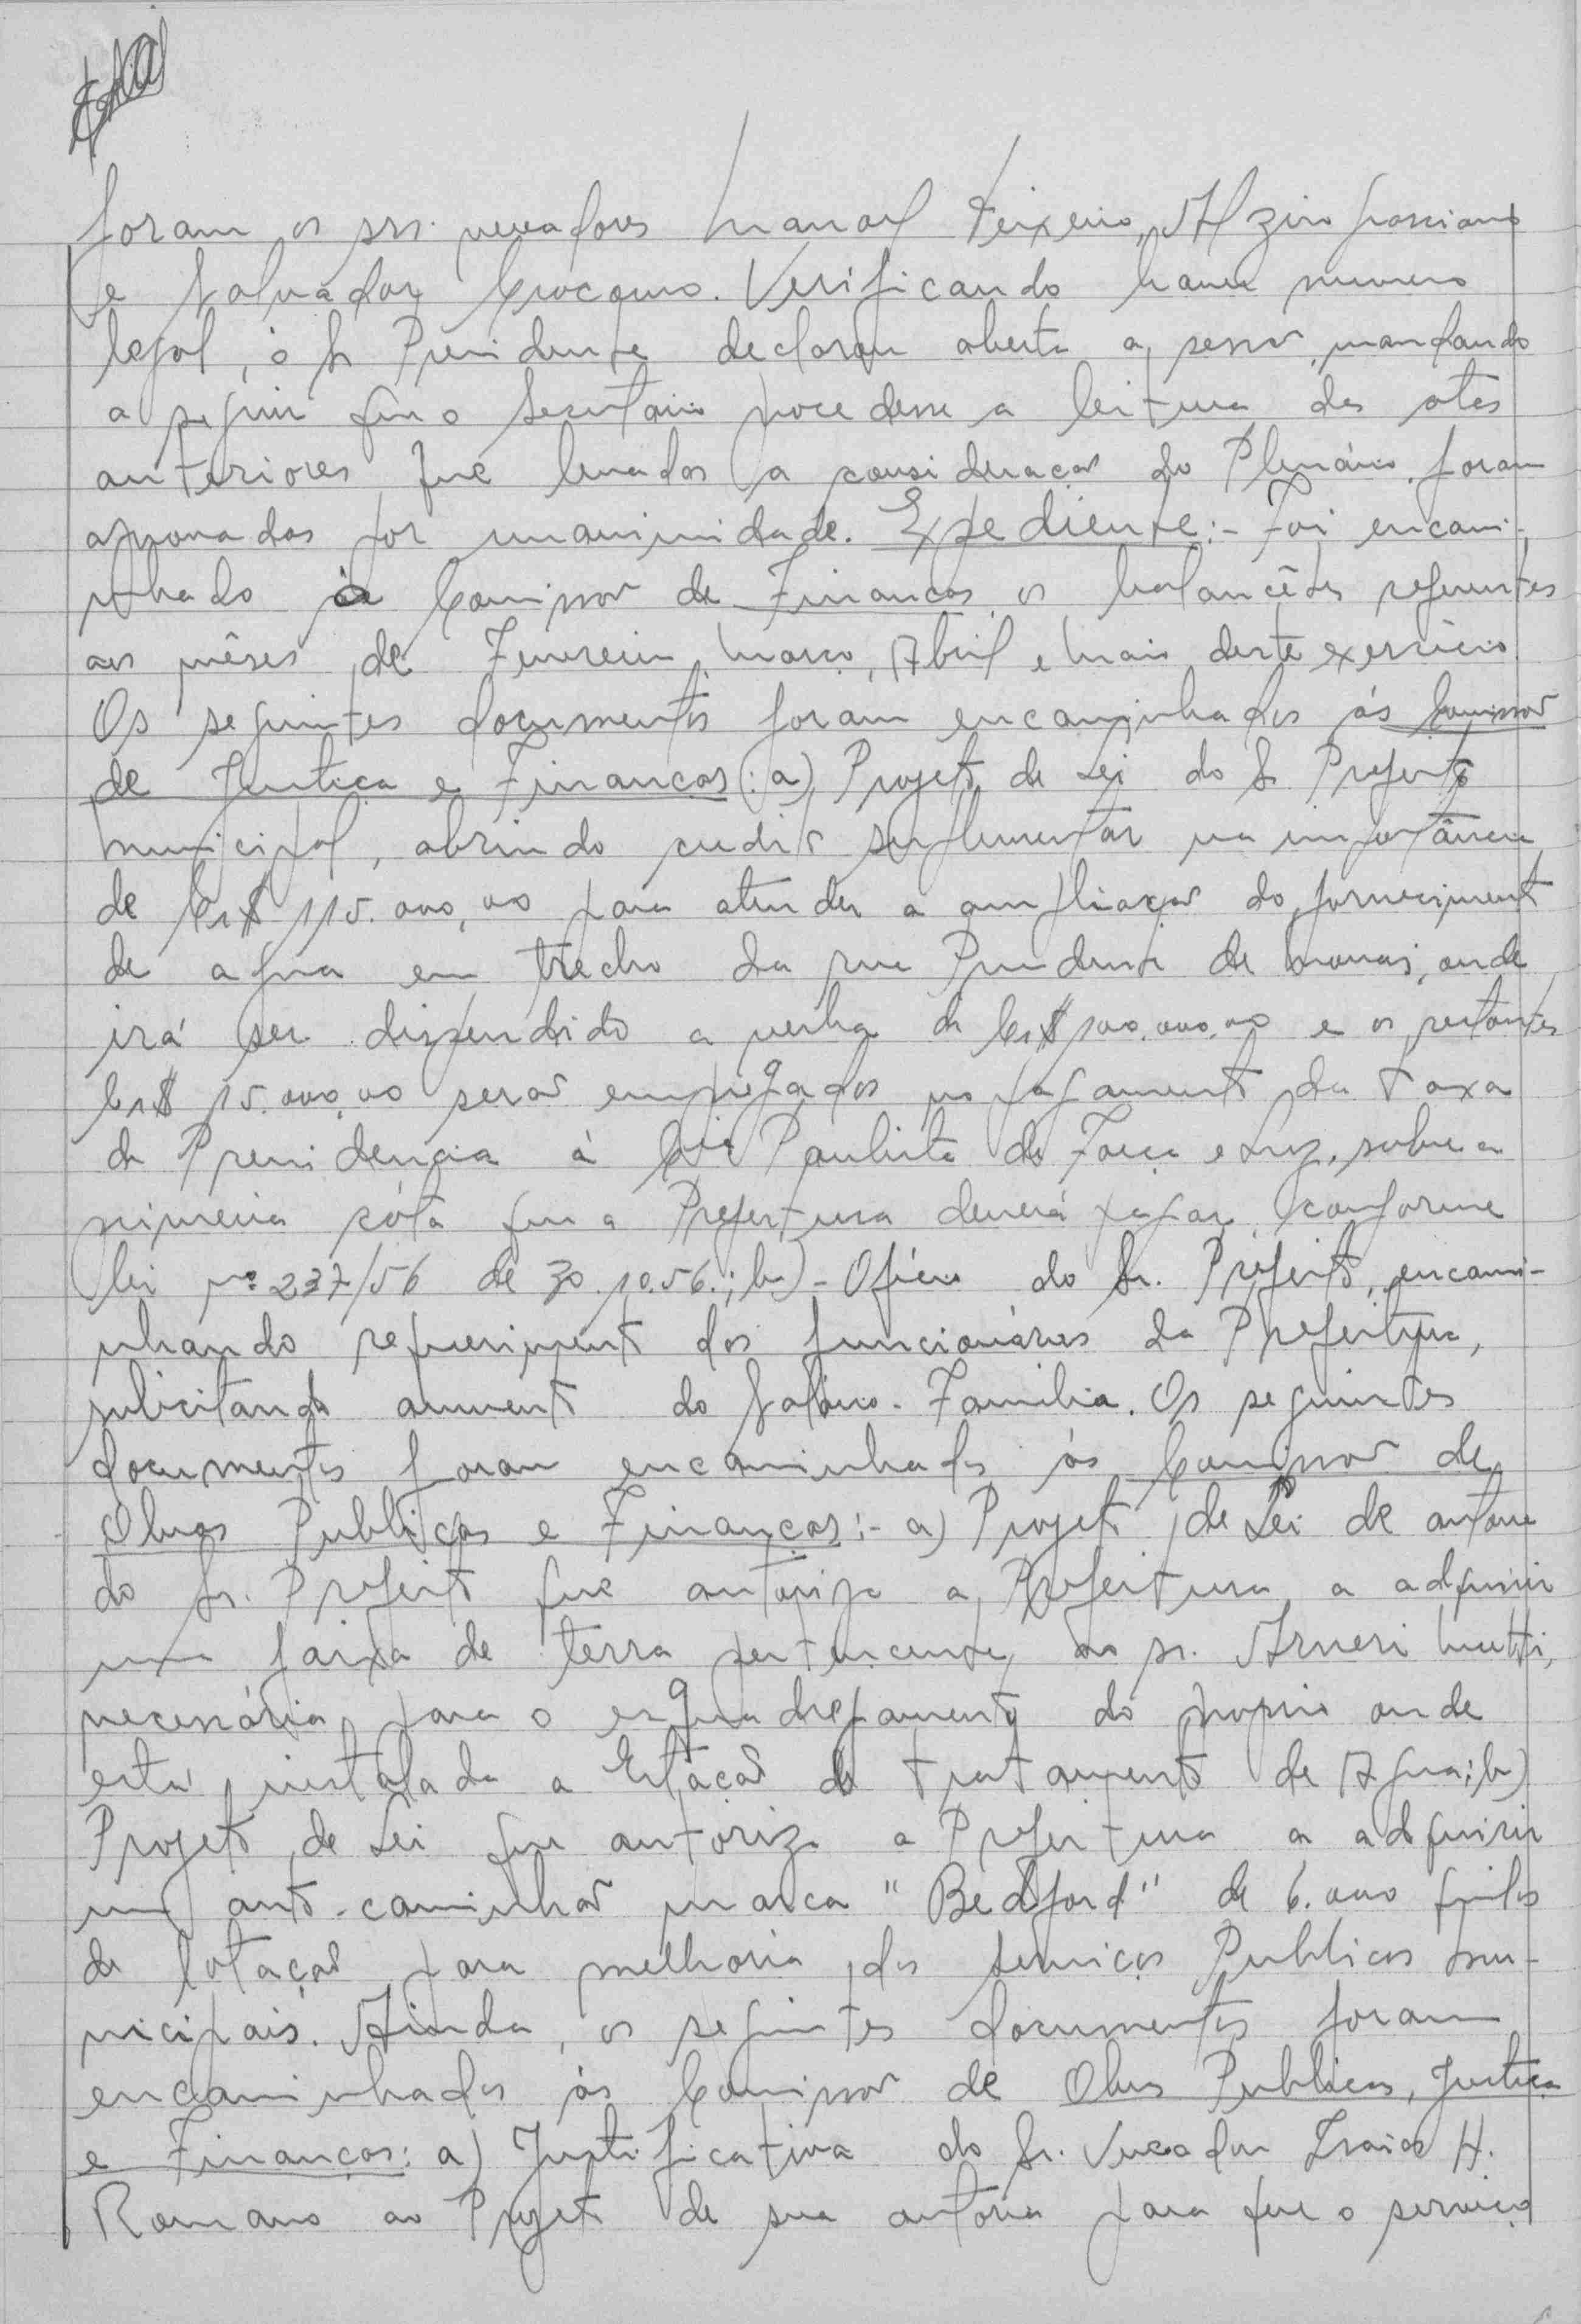 foram os srs. vereadores Manoel Teixeira, Alziro Ponciano
e Salvador Crocomo. Verificando haver numero
legal, o Sr Presidente declarou aberta a sessão, mandando
a seguir que o Secretario procedesse a leitura das atas
anteriores que levadas a consideração do Plenário, foram
aprovadas por unanimidade. Expediente:- Foi encami-
nhado à Comissão de Finanças os balancêtes referentes
aos mêses de Fevereiro, Março, Abril e Maio deste exercicio.
Os seguintes documentos foram encaminhados ás Comissão
de Justiça e Finanças: a) Projeto de Lei do Sr Prefeito
Municipal, abrindo credito suplementar na importância
de Cr$ 115.000,00 para atender a ampliação do fornecimento
de agua em trecho da rua Prudente de Morais, onde
irá ser dispendido a verba de Cr$ 100.000,00 e os restantes
Cr$ 15.000,00 serão empregados no pagamento da taxa
de Previdencia á Cia Paulista de Força e Luz, sobre a
primeira cóta que a Prefeitura deverá pagar, conforme
lei nº 237/56 de 30.10.56.; b)- Oficio do Sr. Prefeito, encami-
nhando requerimento dos funcionários da Prefeitura,
solicitando aumento do Salário-Familia. Os seguintes
documentos foram encaminhados ás Comissão de
Obras Publicas e Finanças:- a) Projeto de Lei de autoria
do Sr. Prefeito que autoriza a Prefeitura a adquirir
uma faixa de terra pertencente ao sr. Arneri
necessária para o esquadrejamento do proprio onde
esta instalada a Estação de tratamento de Agua; b)
Projeto de Lei que autoriza a Prefeitura a adquirir
um auto-caminhão marca "Bedford" de 6.000 quilos
de lotação, para melhoria dos serviços Publicos Mu-
nicipais. Ainda, os seguintes documentos foram
encaminhados ás Comissão de Obras Publicas, Justiça
e Finanças: a) Justificativa do Sr. Vereador Isaias H.
Romano ao Projeto de sua autoria para que o serviço